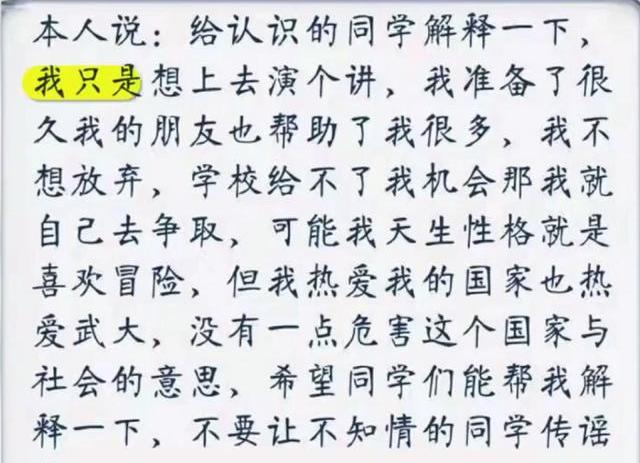 本人说：给认识的同学解释一下，
我只是想上去演个讲，我准备了很
久我的朋友也帮助了我很多，我不
想放弃，学校给不了我机会那我就
自己去争取，可能我天生性格就是
喜欢冒险，但我热爱我的国家也热
爱武大，没有一点危害这个国家与
社会的意思，希望同学们能帮我解
释一下，不要让不知情的同学传谣